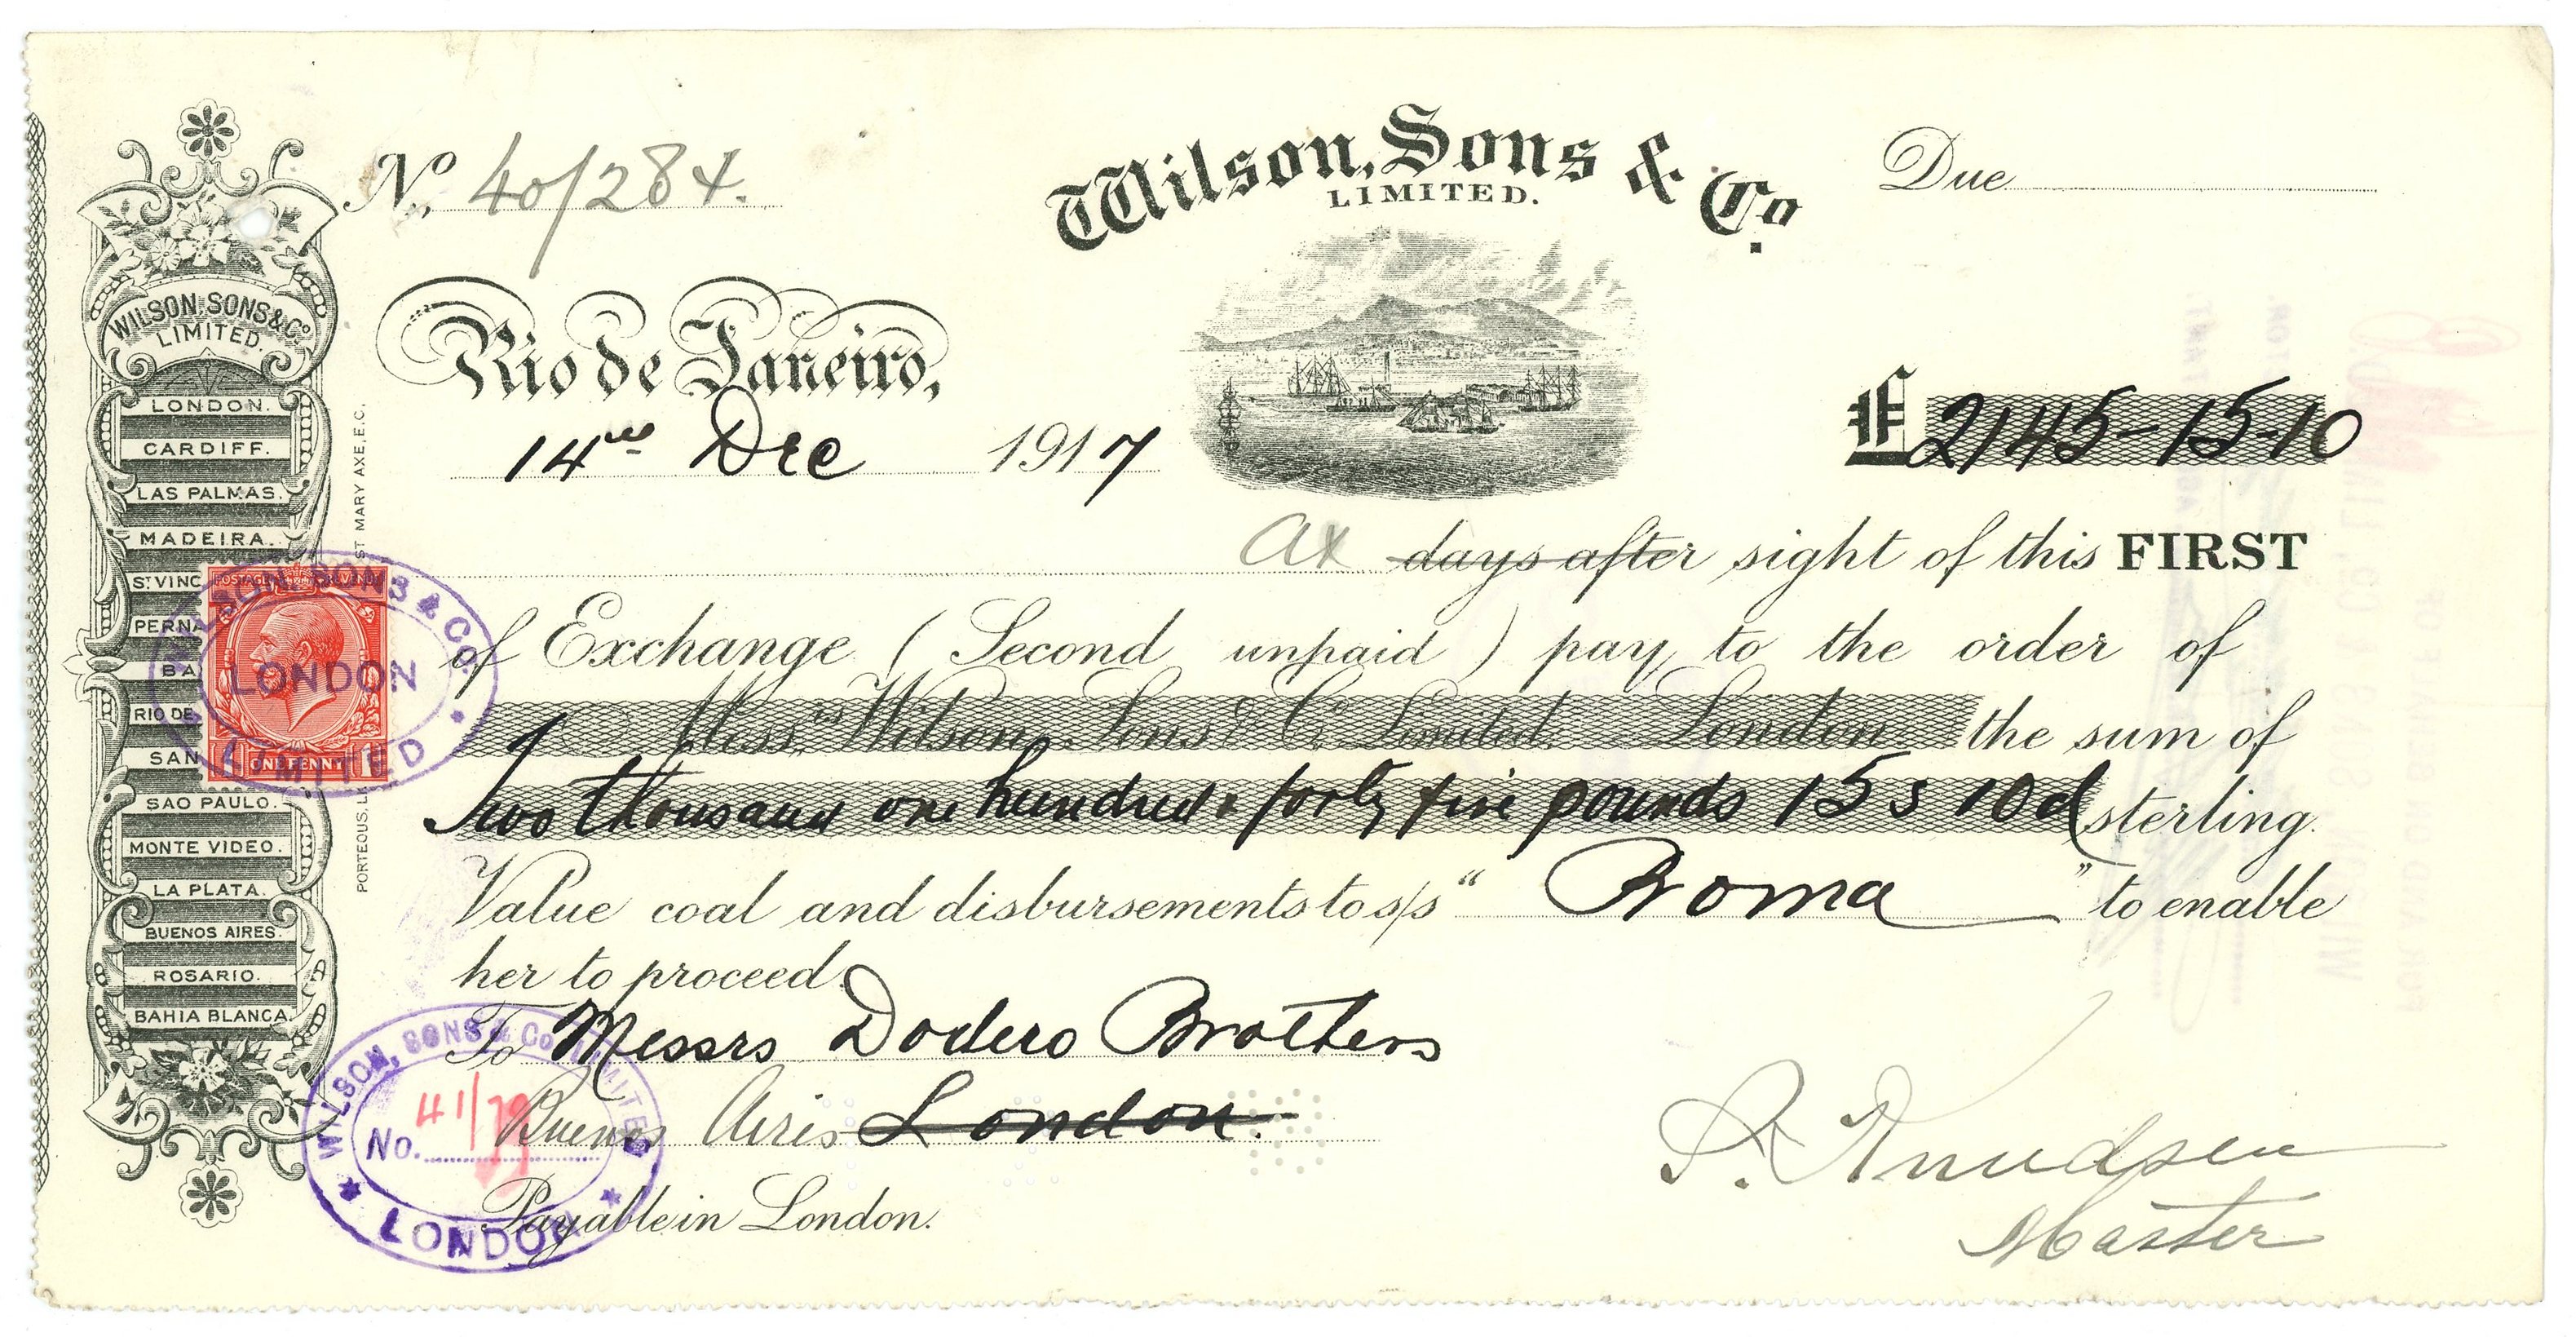 No. 40/284.
Wilson, Sons & Co.
LIMITED.
Due
WILSON, SONS & Co.
LIMITED.
LONDON.
CARDIFF.
LAS PALMAS.
MADEIRA.
ST VINC
PERNA
BA
RIO DE
SAN
SAO PAULO.
MONTE VIDEO.
LA PLATA.
BUENOS AIRES.
ROSARIO.
BAHIA BLANCA.
ST MARY AXE, E.C.
PORTEOUS,
Rio de Janeiro,
14 Dec 1917
£ 2145-15-10
At days after sight of this FIRST
of Exchange (Second unpaid) pay to the order of
Messrs Wilson Sons & Co. Limited. London the sum of
Two thousand one hundred & forty five pounds 15s 10d sterling.
Value coal and disbursements to s/s "Roma" to enable
her to proceed.
To Messrs Dodero Brothers
Buenos Aires London.
Payable in London.
P. Knudsen
Master
POSTAGE REVENUE
ONE PENNY
WILSON, SONS & CO.
LONDON
LIMITED
WILSON, SONS & Co. LIMITED
No. 41/79
LONDON